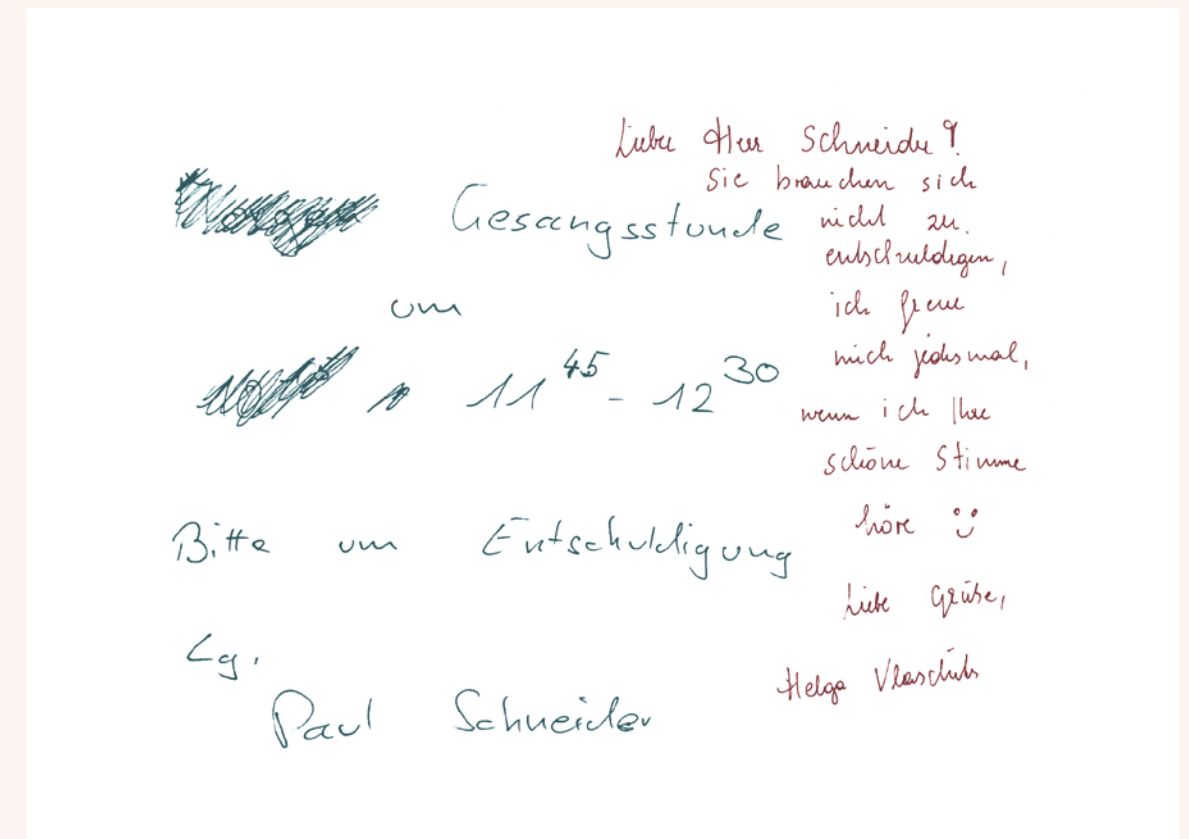 Gesangsstunde
um
11 45 - 12 30
Bitte um Entschuldigung
Lg.
Paul Schneider
Lieber Herr Schneider!
Sie brauchen sich
nicht zu
entschuldigen,
ich freue
mich jedesmal,
wenn ich Ihre
schöne Stimme
höre
Liebe Grüße,
Helga